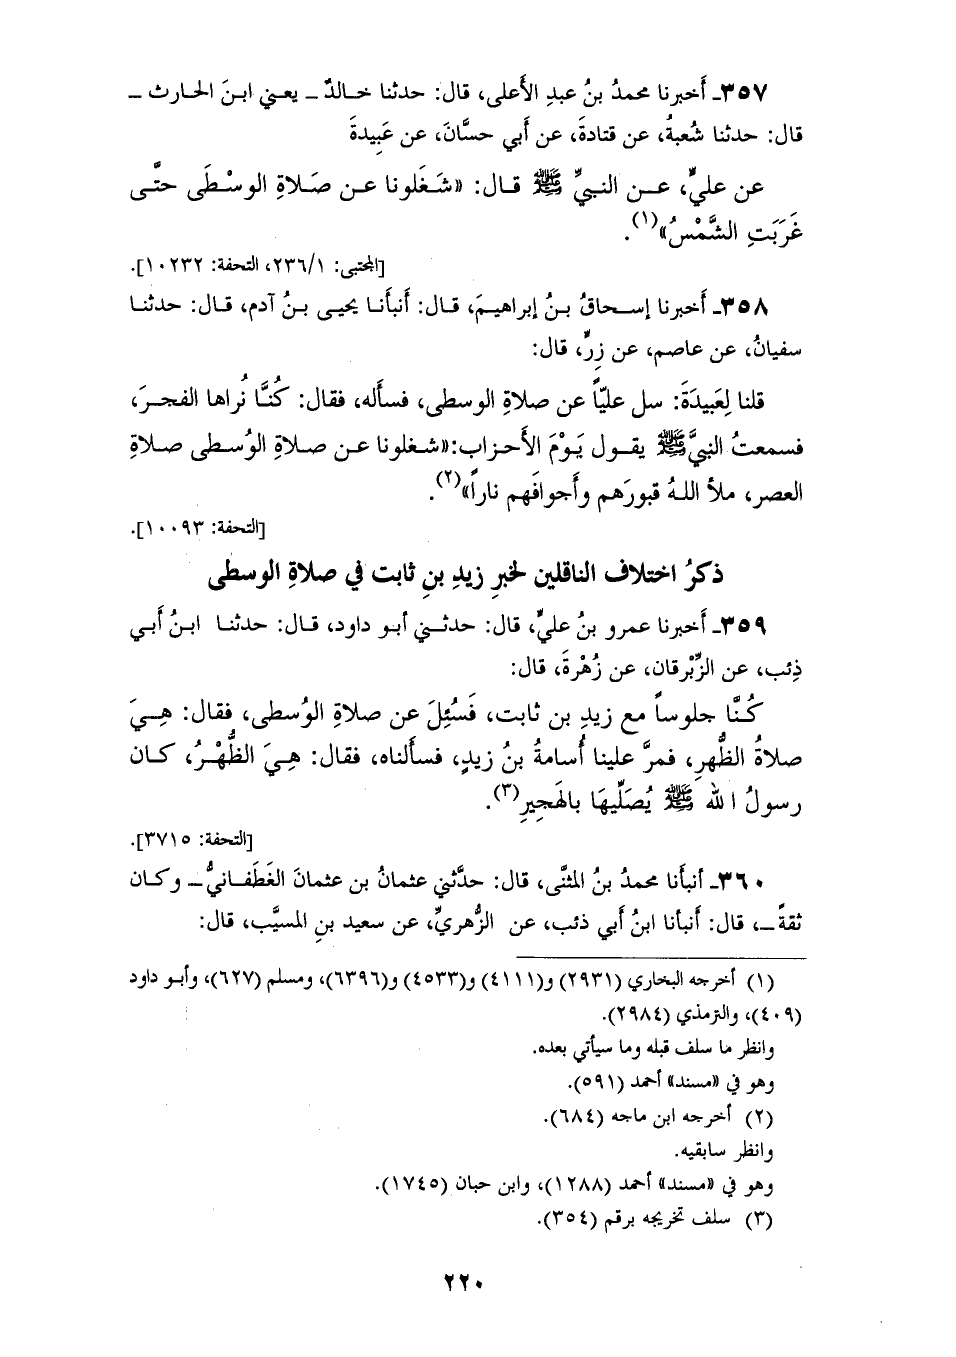 ٣٥٧ـ أخبرنا محمدُ بنُ عبدِ الأعلى، قال: حدثنا خالدٌ ـ يعني ابنَ الحارث ـ
قال: حدثنا شُعبةُ، عن قتادةَ، عن أبي حسَّانَ، عن عَبِيدةَ
عن عليٍّ، عن النبيِّ ﷺ قال: «شَغَلونا عن صَلاةِ الوسْطَى حتَّى
غَرَبَتِ الشَّمْسُ»(١).
[المجتبى: ٢٣٦/١، التحفة: ١٠٢٣٢].
٣٥٨ـ أخبرنا إسحاقُ بنُ إبراهيمَ، قال: أنبأنا يحيى بنُ آدم، قال: حدثنا
سفيانُ، عن عاصم، عن زِرٍّ، قال:
قلنا لِعَبِيدَةَ: سل عليّاً عن صلاةِ الوسطى، فسأله، فقال: كُنَّا نُراها الفجرَ،
فسمعتُ النبيَّ ﷺ يقول يَوْمَ الأحزاب:«شغلونا عن صلاةِ الوُسطى صلاةِ
العصر، ملأ اللهُ قبورَهم وأجوافَهم ناراً»(٢).
[التحفة: ١٠٠٩٣].
ذكرُ اختلاف الناقلين لخبرِ زيدِ بنِ ثابت في صلاةِ الوسطى
٣٥٩ـ أخبرنا عمرو بنُ عليٍّ، قال: حدثني أبو داود، قال: حدثنا ابنُ أبي
ذِئب، عن الزِّبْرقان، عن زُهْرةَ، قال:
كُنَّا جلوساً مع زيدِ بن ثابت، فَسُئِلَ عن صلاةِ الوُسطى، فقال: هِيَ
صلاةُ الظُّهرِ، فمرَّ علينا أُسامةُ بنُ زيدٍ، فسألناه، فقال: هِيَ الظُّهْرُ، كان
رسولُ الله ﷺ يُصَلِّيهَا بالهَجِيرِ(٣).
[التحفة: ٣٧١٥].
٣٦٠ـ أنبأنا محمدُ بنُ المثنَّى، قال: حدَّثني عثمانُ بن عثمانَ الغَطَفانيُّ ـ وكان
ثقةً ـ، قال: أنبأنا ابنُ أبي ذئب، عن الزُّهريِّ، عن سعيد بنِ المسيَّب، قال:
(١) أخرجه البخاري (٢٩٣١) و(٤١١١) و(٤٥٣٣) و(٦٣٩٦)، ومسلم (٦٢٧)، وأبو داود
(٤٠٩)، والترمذي (٢٩٨٤).
وانظر ما سلف قبله وما سيأتي بعده.
وهو في «مسند» أحمد (٥٩١).
(٢) أخرجه ابن ماجه (٦٨٤).
وانظر سابقيه.
وهو في «مسند» أحمد (١٢٨٨)، وابن حبان (١٧٤٥).
(٣) سلف تخريجه برقم (٣٥٤).
٢٢٠